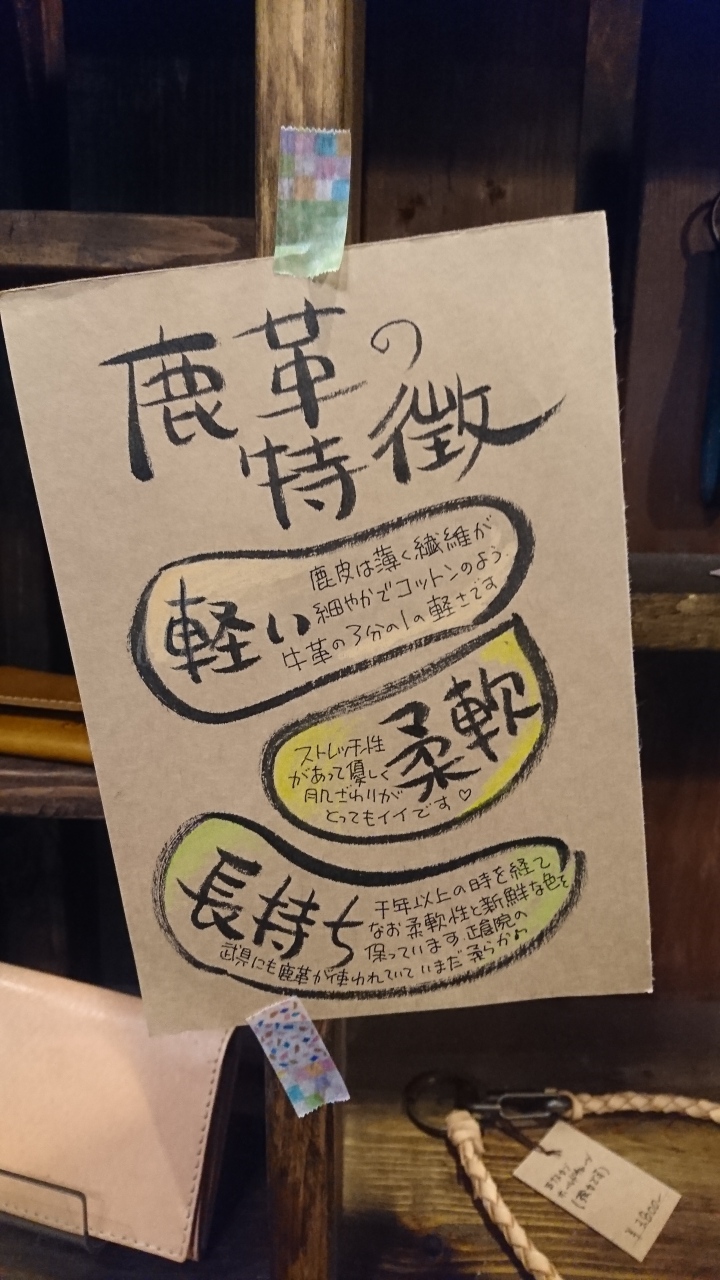 鹿革の
特徴
軽い
鹿皮は薄く繊維が
細やかでコットンのよう。
牛革の3分の1の軽さです
柔軟
ストレッチ性
があって優しく
肌ざわりが
とってもイイです♡
長持ち
千年以上の時を経て
なお柔軟性と新鮮な色を
保っています。正倉院の
武具にも鹿革が使われていていまだ柔らかい
(抜きです)
¥3800-